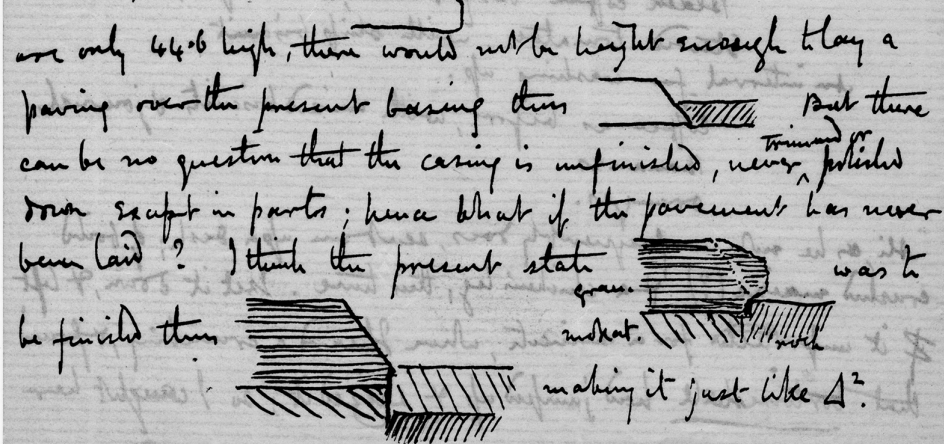 are only 44.6 high, there would not be height enough to lay a
paving over the present basing thus But there
can be no question that the casing is unfinished, never trimmed or polished
down except in parts; hence what if the pavement has never
been laid? I think the present state was to
gran.
be finished thus mokat. rock
making it just like Δ².